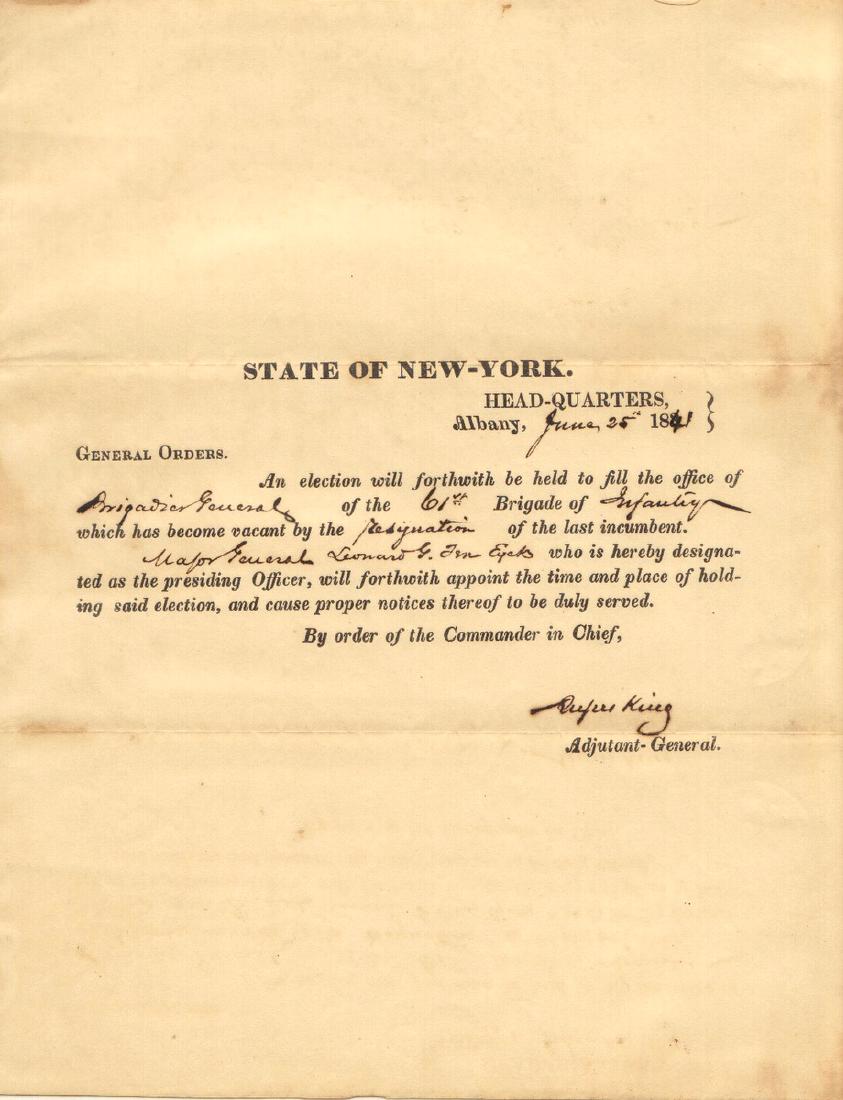 STATE OF NEW-YORK.
HEAD-QUARTERS,
Albany, June 25th 1841
GENERAL ORDERS.
An election will forthwith be held to fill the office of
Brigadier General of the 61st Brigade of Infantry
which has become vacant by the resignation of the last incumbent.
Major General Leonard G. Ten Eyck who is hereby designa-
ted as the presiding Officer, will forthwith appoint the time and place of hold-
ing said election, and cause proper notices thereof to be duly served.
By order of the Commander in Chief,
Rufus King
Adjutant-General.